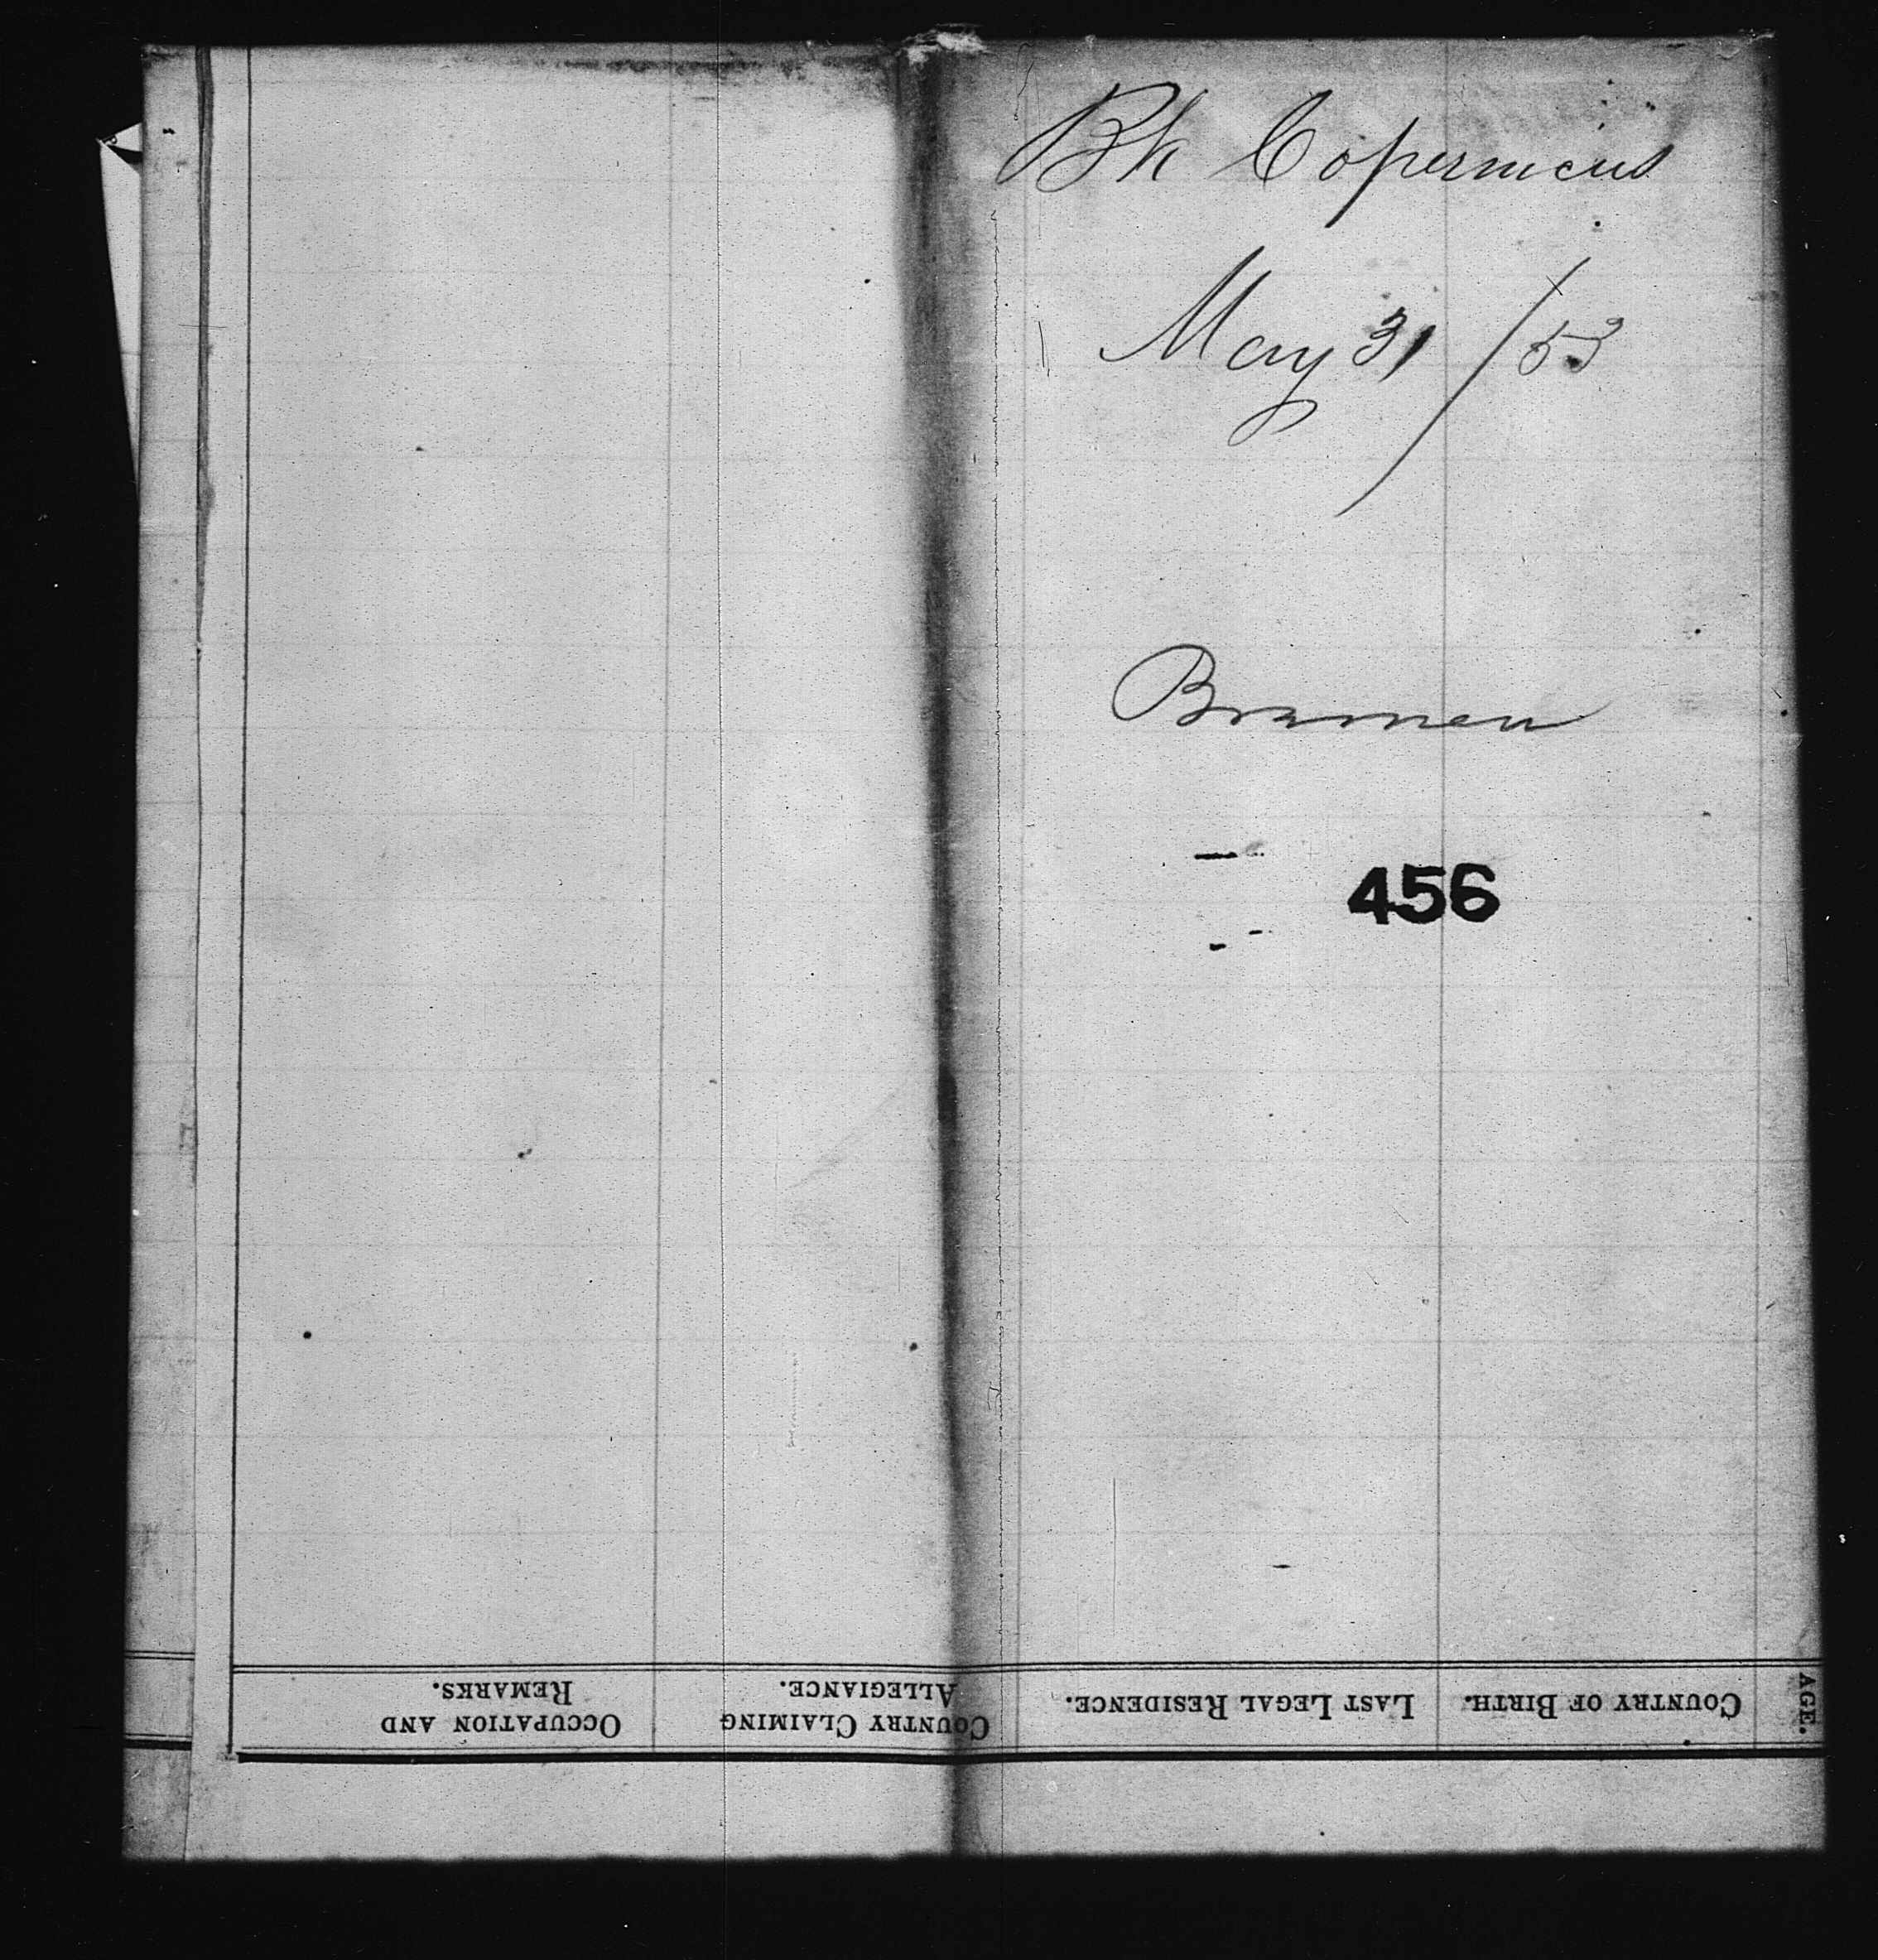 Bk Copernicus
May 31 / 53
Bremen
456
AGE.
COUNTRY OF BIRTH.
LAST LEGAL RESIDENCE.
COUNTRY CLAIMING
ALLEGIANCE.
OCCUPATION AND
REMARKS.